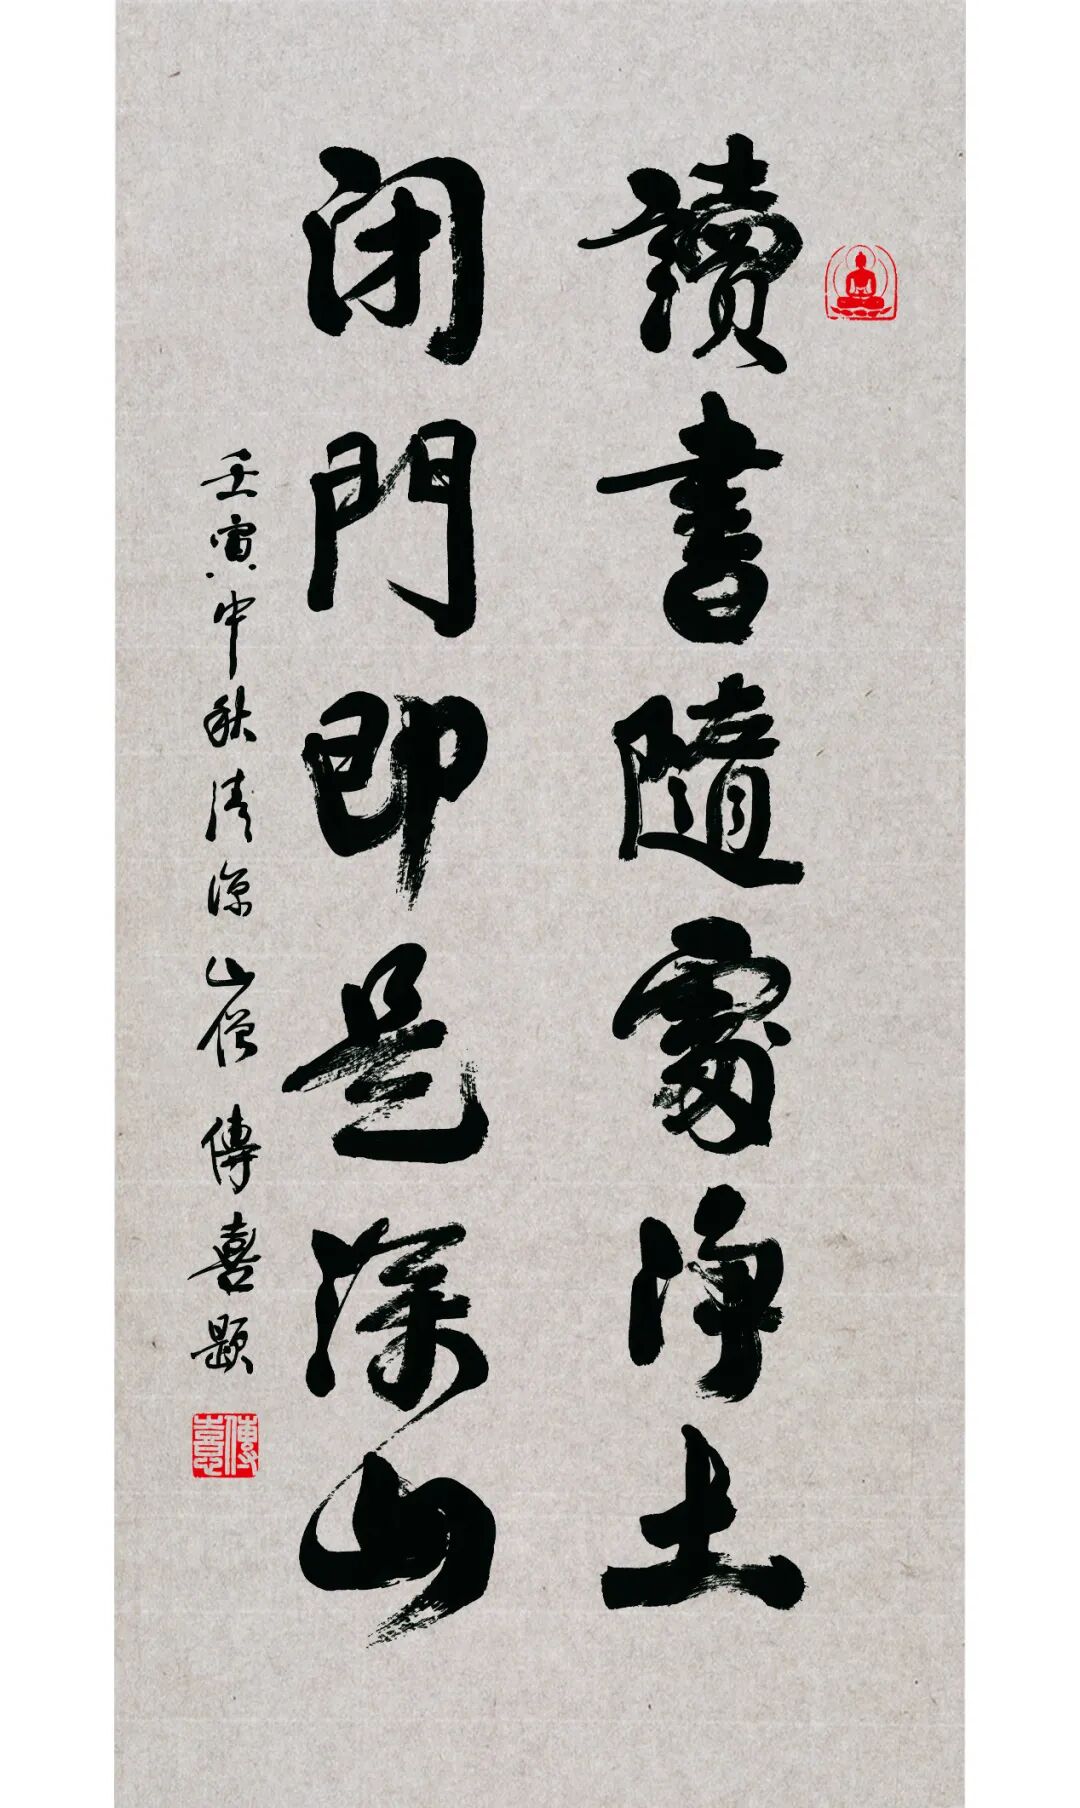 讀書隨處淨土
闭門即是深山
壬寅中秋清凉山僧傳喜題
傳喜